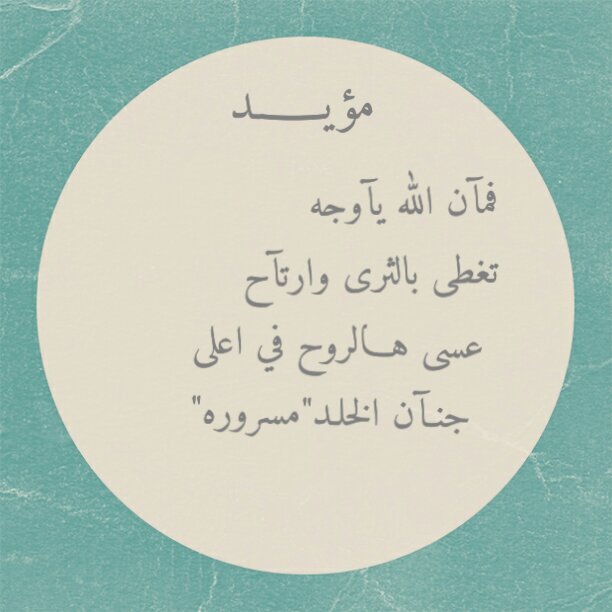 مؤيــــــد
فمآن الله يآوجه
تغطى بالثرى وارتآح
عسى هـالروح في اعلى
جنـآن الخلد"مسروره"